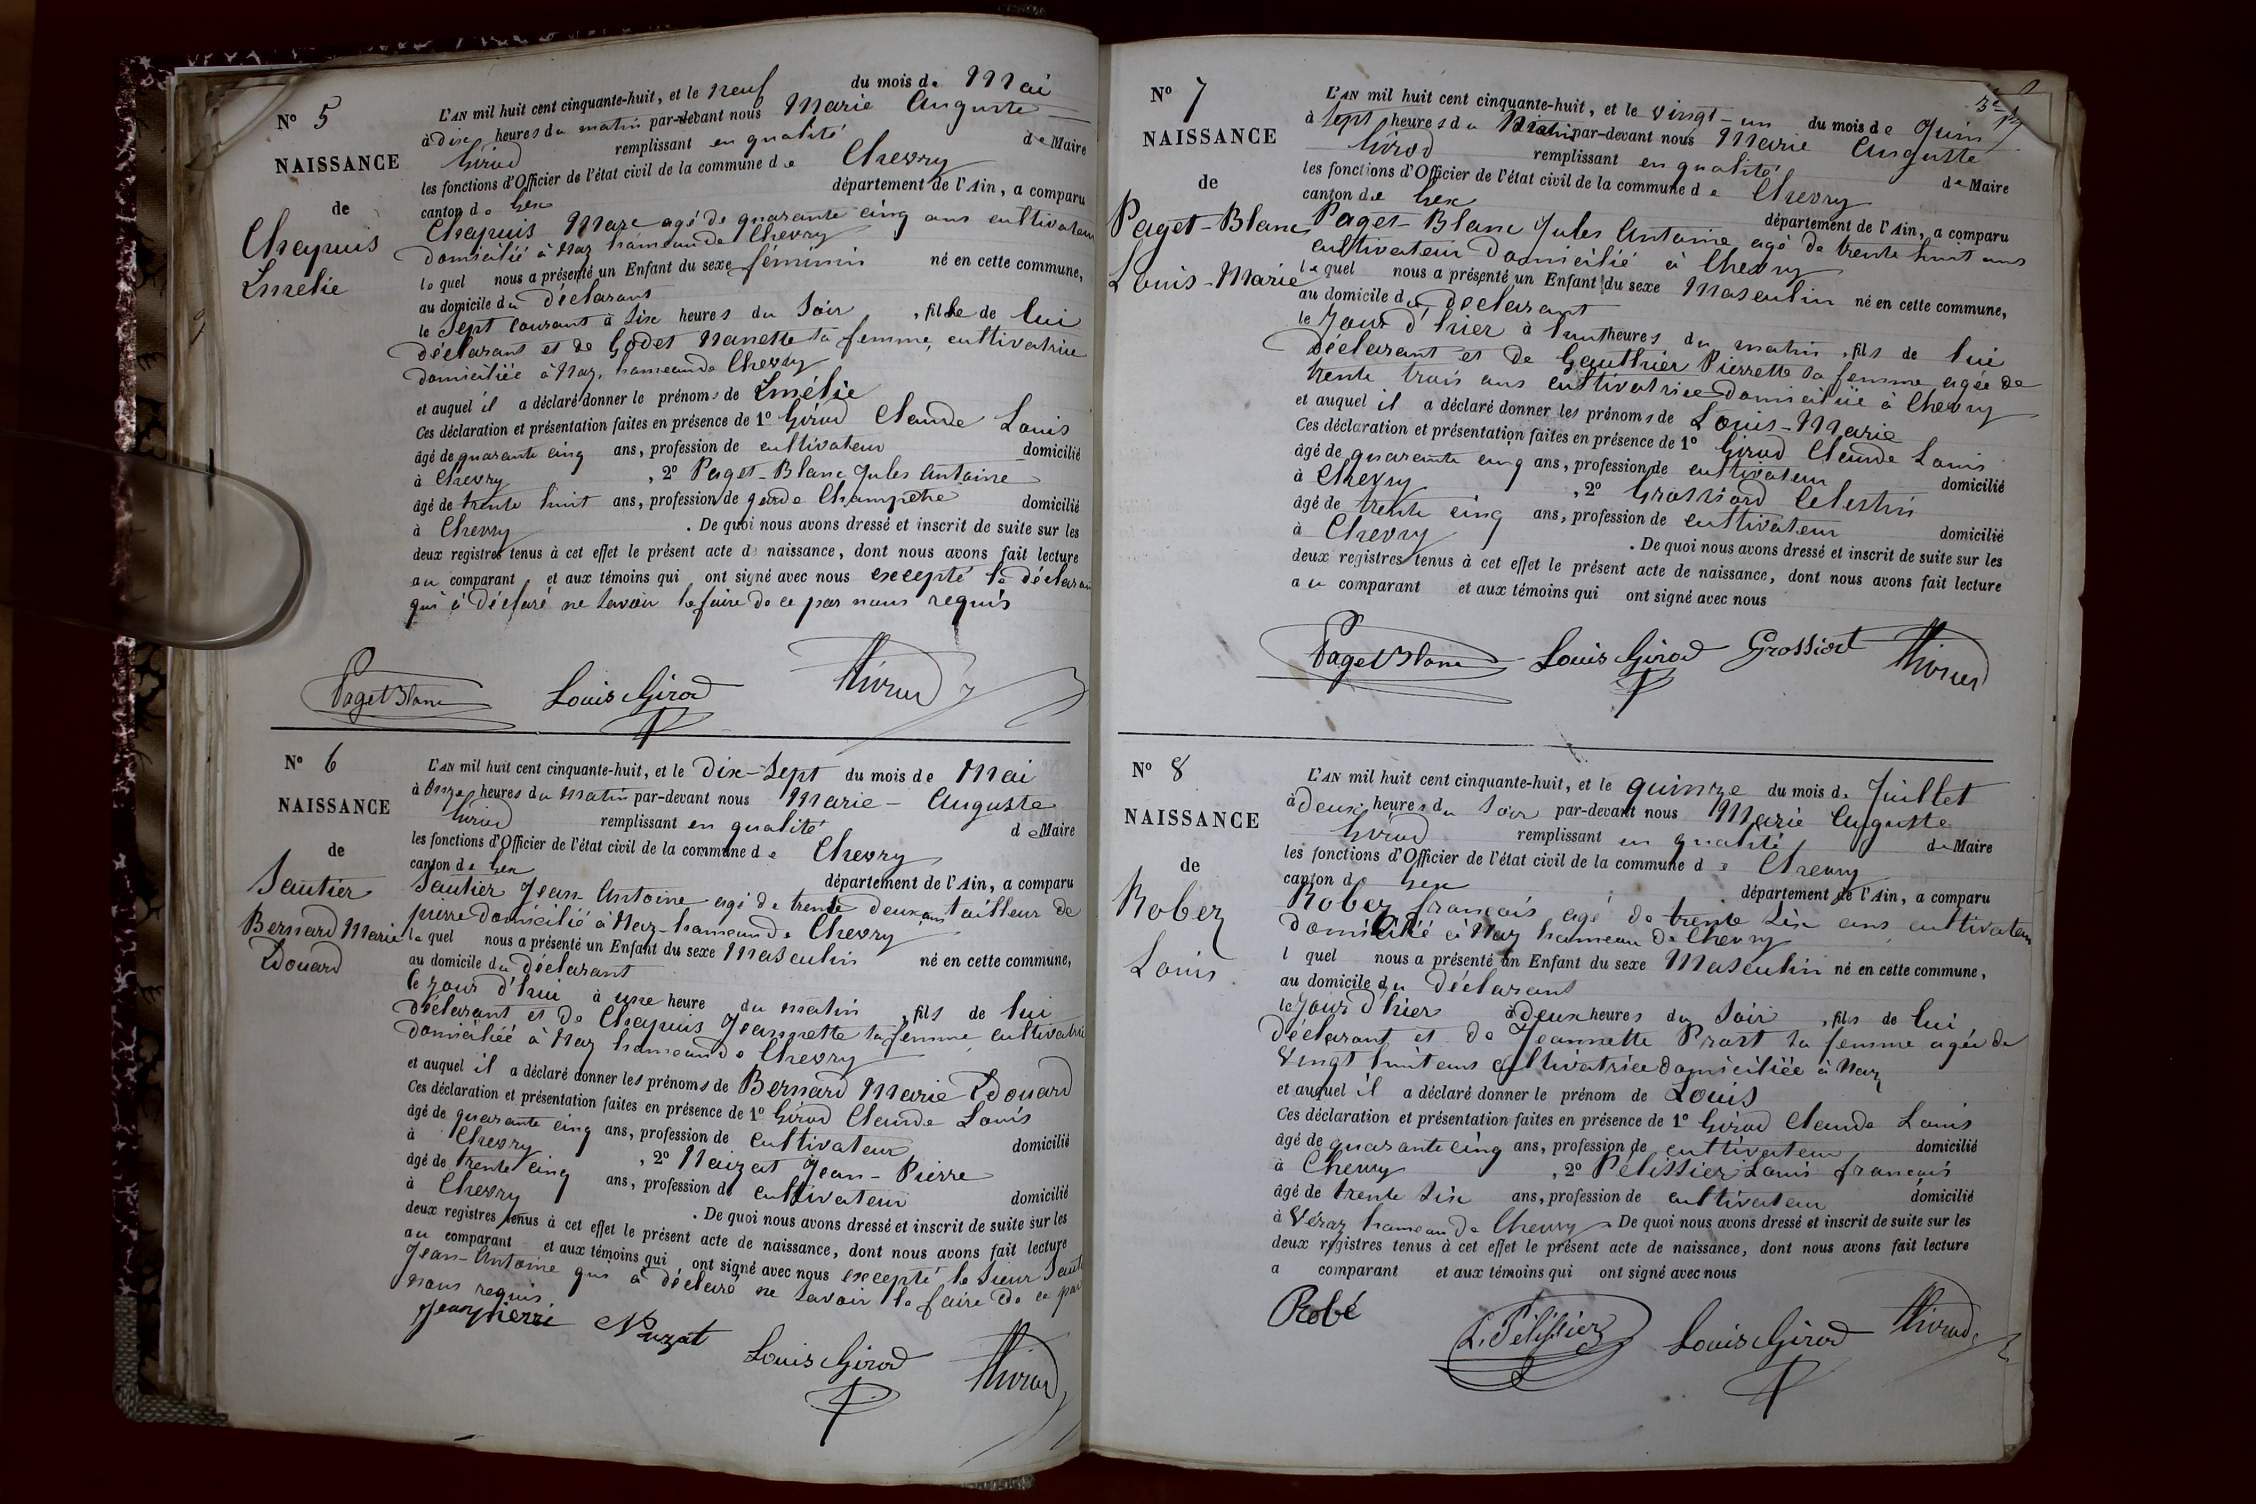 N° 5
NAISSANCE
de
Chapuis
Emélie
L'AN mil huit cent cinquante-huit, et le neuf du mois de Mai
à dix heures du matin par-devant nous Marie Auguste
Girod remplissant en qualité de Maire
les fonctions d'Officier de l'état civil de la commune de Chevry
canton de Gex département de l'Ain, a comparu
Chapuis Marc agé de quarante cinq ans cultivateur
domicilié à Naz hameau de Chevry
lequel nous a présenté un Enfant du sexe féminin né en cette commune,
au domicile du déclarant
le sept courant à six heures du soir, fille de lui
déclarant et de Godet Nanette sa femme, cultivatrice
domiciliée à Naz, hameau de Chevry
et auquel il a déclaré donner le prénoms de Emélie
Ces déclaration et présentation faites en présence de 1° Girod Claude Louis
âgé de quarante cinq ans, profession de cultivateur domicilié
à Chevry, 2° Paget-Blanc Jules Antoine
âgé de trente huit ans, profession de garde Champêtre domicilié
à Chevry. De quoi nous avons dressé et inscrit de suite sur les
deux registres tenus à cet effet le présent acte de naissance, dont nous avons fait lecture
au comparant et aux témoins qui ont signé avec nous excepté le déclaran
qui à déclaré ne savoir le faire de ce par nous requis
Paget Blanc Louis Girod Girod
N° 6
NAISSANCE
de
Sautier
Bernard Marie
Edouard
L'AN mil huit cent cinquante-huit, et le dix-sept du mois de Mai
à onze heures du matin par-devant nous Marie-Auguste
Girod remplissant en qualité de Maire
les fonctions d'Officier de l'état civil de la commune de Chevry
canton de Gex département de l'Ain, a comparu
Sautier Jean Antoine agé de trente deux ans tailleur de
pierre domicilié à Naz-hameau de Chevry
lequel nous a présenté un Enfant du sexe Masculin né en cette commune,
au domicile du déclarant
le jour d'hui à une heure du matin, fils de lui
déclarant et de Chapuis Jeannette sa femme, cultivatrice
domiciliée à Naz hameau de Chevry
et auquel il a déclaré donner les prénoms de Bernard Marie Edouard
Ces déclaration et présentation faites en présence de 1° Girod Claude Louis
âgé de quarante cinq ans, profession de cultivateur domicilié
à Chevry, 2° Naizat Jean-Pierre
âgé de trente cinq ans, profession de cultivateur domicilié
à Chevry. De quoi nous avons dressé et inscrit de suite sur les
deux registres tenus à cet effet le présent acte de naissance, dont nous avons fait lecture
au comparant et aux témoins qui ont signé avec nous excepté le sieur Saut
Jean-Antoine qui à déclaré ne savoir le faire de ce par
nous requis
Jeanpierre Louis Girod Girod
N° 7
NAISSANCE
de
Paget-Blanc
Louis-Marie
L'AN mil huit cent cinquante-huit, et le vingt-un du mois de Juin
à sept heures du Matin par-devant nous Marie Auguste
Girod remplissant en qualité de Maire
les fonctions d'Officier de l'état civil de la commune de Chevry
canton de Gex département de l'Ain, a comparu
Paget-Blanc Jules Antoine agé de trente huit ans
cultivateur domicilié à Chevry
lequel nous a présenté un Enfant du sexe Masculin né en cette commune,
au domicile du déclarant
le jour d'hier à huit heures du matin, fils de lui
déclarant et de Gauthier Pierrette sa femme agée de
trente trois ans cultivatrice domiciliée à Chevry
et auquel il a déclaré donner les prénoms de Louis-Marie
Ces déclaration et présentation faites en présence de 1° Girod Claude Louis
âgé de quarante cinq ans, profession de cultivateur domicilié
à Chevry, 2° Grossiord Celestin
âgé de trente cinq ans, profession de cultivateur domicilié
à Chevry. De quoi nous avons dressé et inscrit de suite sur les
deux registres tenus à cet effet le présent acte de naissance, dont nous avons fait lecture
au comparant et aux témoins qui ont signé avec nous
Paget Blanc Louis Girod Grossiord Girod
N° 8
NAISSANCE
de
Robez
Louis
L'AN mil huit cent cinquante-huit, et le quinze du mois de Juillet
à deux heures du soir par-devant nous Marie Auguste
Girod remplissant en qualité de Maire
les fonctions d'Officier de l'état civil de la commune de Chevry
canton de Gex département de l'Ain, a comparu
Robez françois, agé de trente six ans cultivateur
domicilié à Naz hameau de Chevry
l quel nous a présenté un Enfant du sexe Masculin né en cette commune,
au domicile du déclarant
le jour d'hier à deux heures du soir, fils de lui
déclarant et de Jeannette Prost sa femme agée de
vingt huit ans cultivatrice domiciliée à Naz
et auquel il a déclaré donner le prénom de Louis
Ces déclaration et présentation faites en présence de 1° Girod Claude Louis
âgé de quarante cinq ans, profession de cultivateur domicilié
à Chevry, 2° Pélissier Louis françois
âgé de trente six ans, profession de cultivateur domicilié
à Véraz hameau de Chevry. De quoi nous avons dressé et inscrit de suite sur les
deux registres tenus à cet effet le présent acte de naissance, dont nous avons fait lecture
a comparant et aux témoins qui ont signé avec nous
Robé L. Pélissier Louis Girod Girod